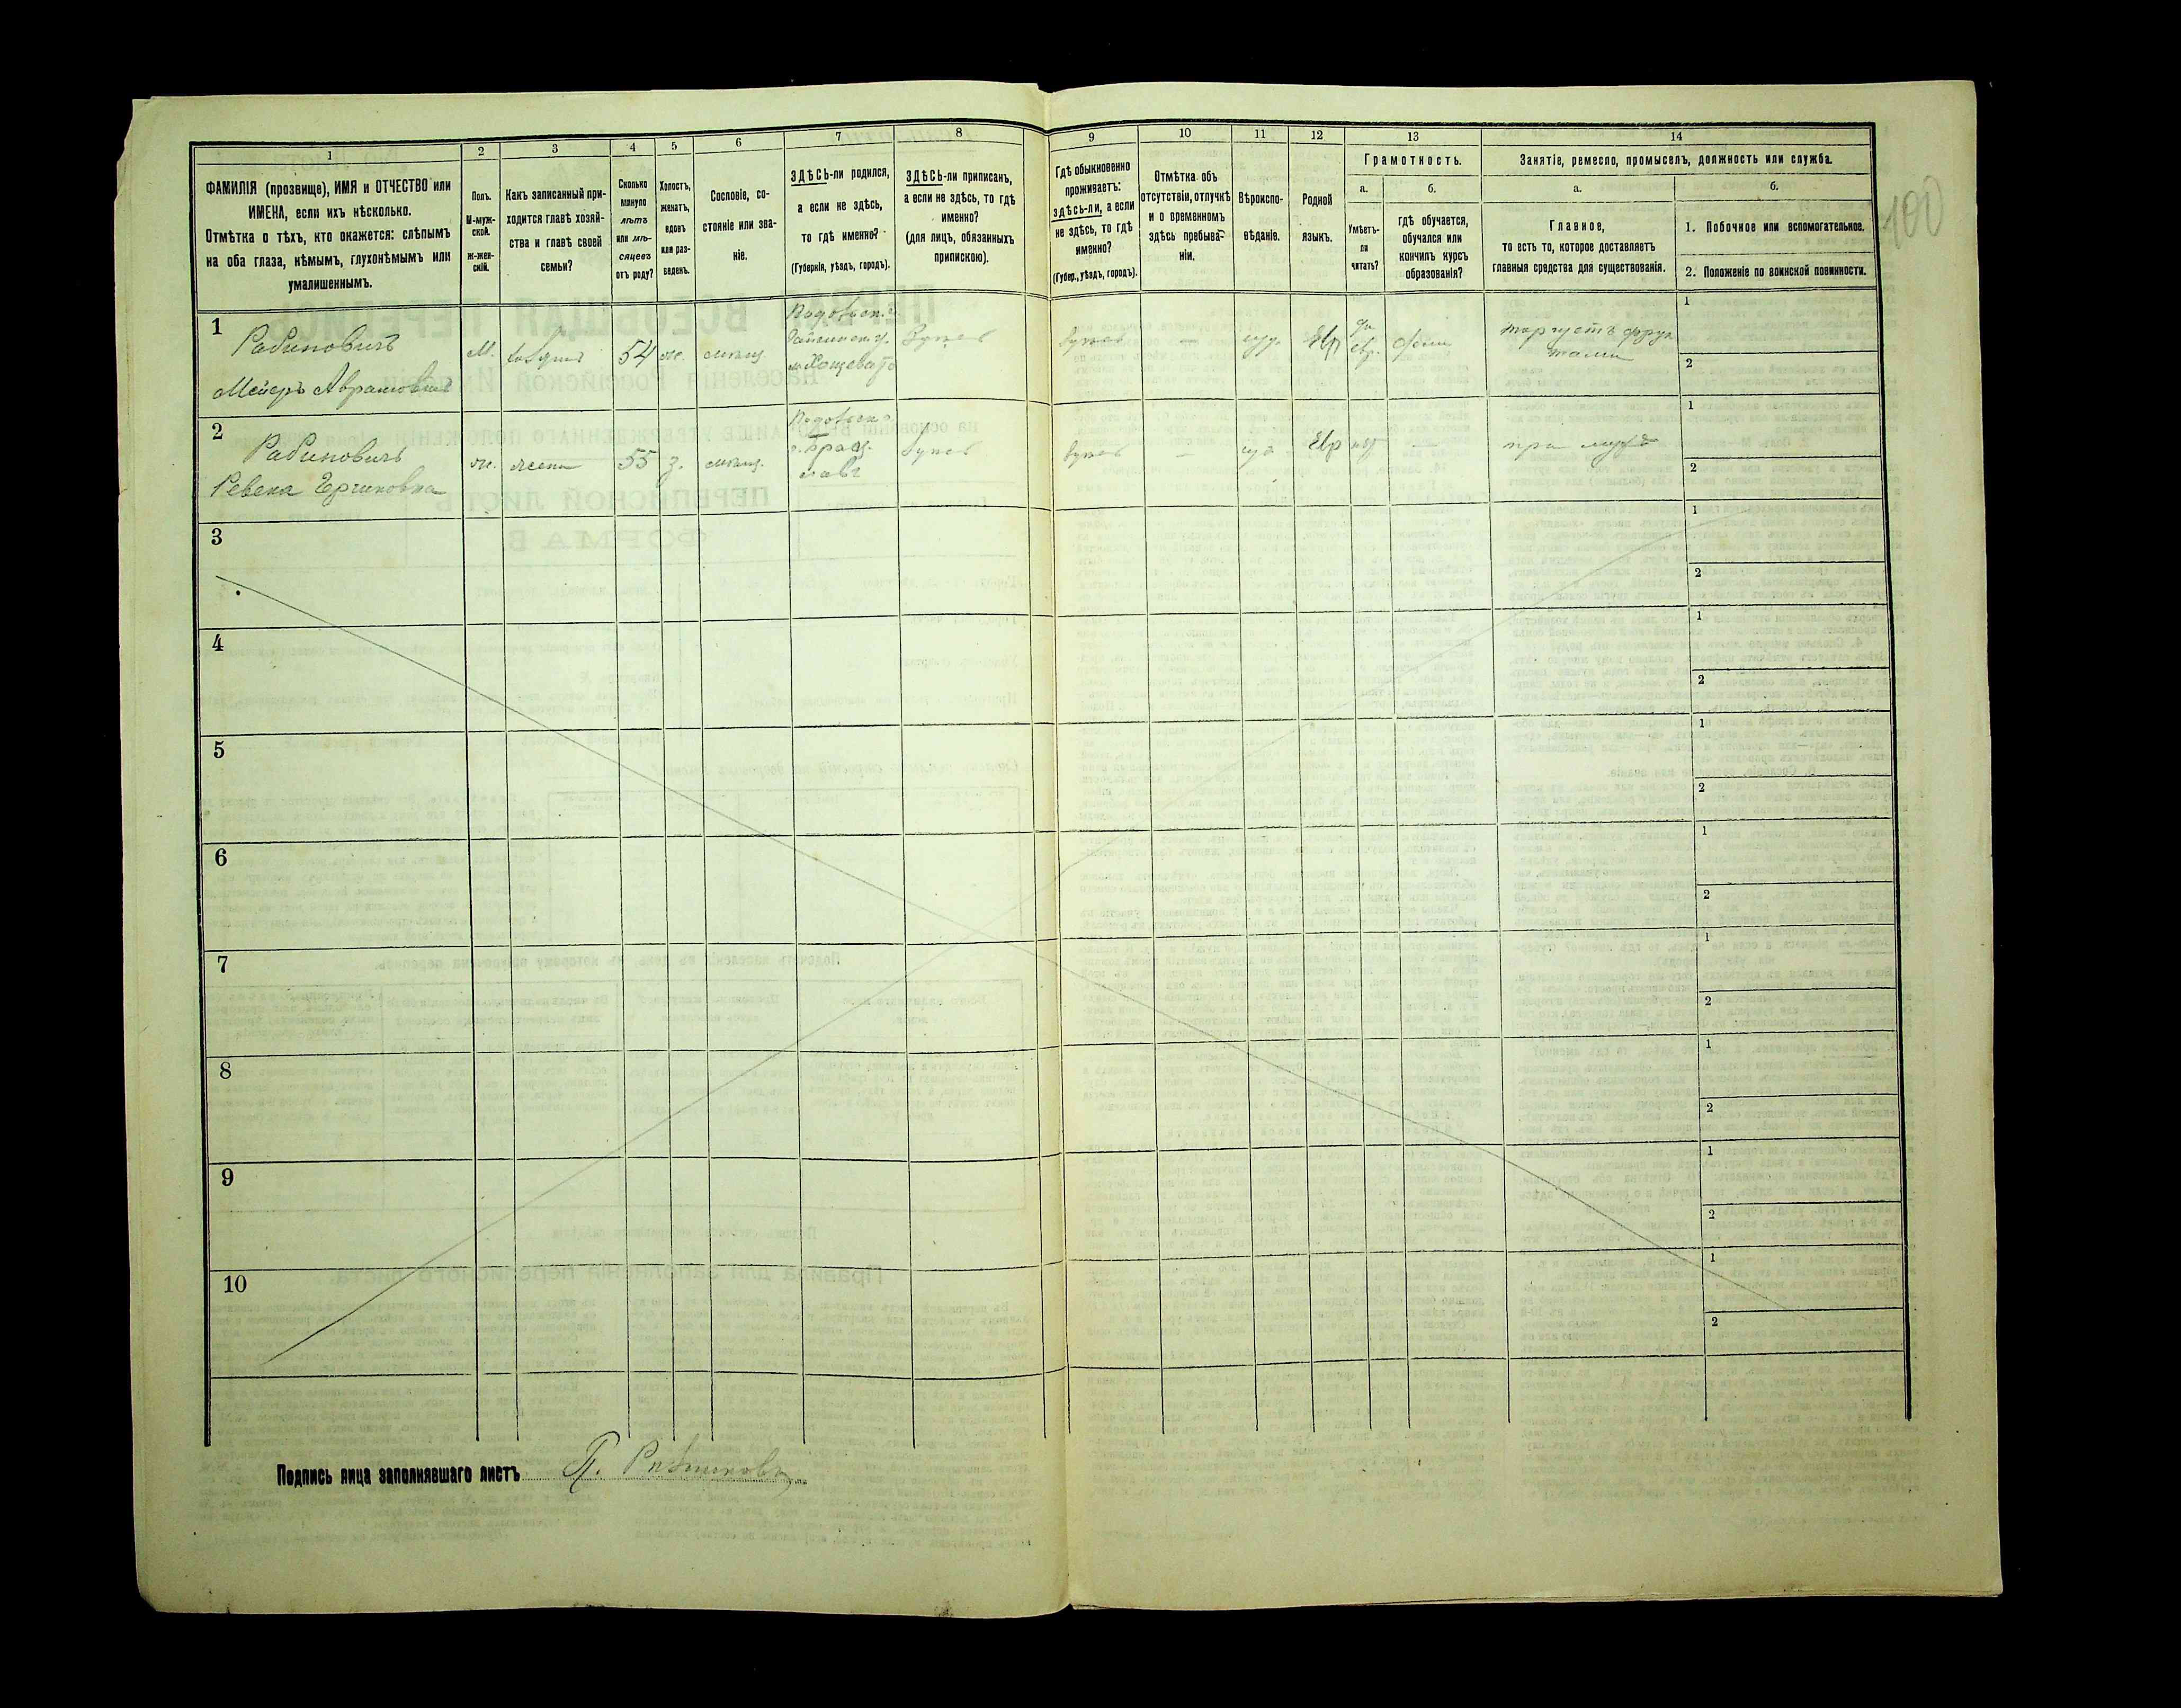 1
ФАМИЛІЯ (прозвище), ИМЯ и ОТЧЕСТВО или
ИМЕНА, если ихъ нѣсколько.
Отмѣтка о тѣхъ, кто окажется: слѣпымъ
на оба глаза, нѣмымъ, глухонѣмымъ или
умалишеннымъ.
2
Полъ.
М-муж-
ской.
ж-жен-
скій.
3
Какъ записанный при-
ходится главѣ хозяй-
ства и главѣ своей
семьи?
4
Сколько
минуло
лѣтъ
или мѣ-
сяцевъ
отъ роду?
5
Холостъ,
женатъ,
вдовъ
или раз-
веденъ.
6
Сословіе, со-
стояніе или зва-
ніе.
7
ЗДѢСЬ-ли родился,
а если не здѣсь,
то гдѣ именно?
(Губернія, уѣздъ, городъ).
8
ЗДѢСЬ-ли приписанъ,
а если не здѣсь, то гдѣ
именно?
(для лицъ, обязанныхъ
припискою).
9
Гдѣ обыкновенно
проживаетъ:
здѣсь-ли, а если
не здѣсь, то гдѣ
именно?
(Губер., уѣздъ, городъ).
10
Отмѣтка объ
отсутствіи, отлучкѣ
и о временномъ
здѣсь пребыва-
ніи.
11
Вѣроиспо-
вѣданіе.
12
Родной
языкъ.
13
Грамотность.
а.
Умѣетъ-
ли
читать?
б.
гдѣ обучается,
обучался или
кончилъ курсъ
образованія?
14
Занятіе, ремесло, промыселъ, должность или служба.
а.
Главное,
то есть то, которое доставляетъ
главныя средства для существованія.
б.
1. Побочное или вспомогательное.
2. Положеніе по воинской повинности.
100
1
Рабиновичъ
Мейеръ Аврамовичъ
М.
хозяинъ
54
ж.
мѣщ
Подольск. г.
м. Хощевато
—
іуд.
Евр
да
евр.
дома
торгуетъ фрук
тами
1
2
2
Рабиновичъ
Ревека
ж.
жена
55
з.
мѣщ.
Подольск
г. Брац
лавъ
—
іуд
Евр
нѣт
—
при мужѣ
1
2
3
1
2
4
1
2
5
1
2
6
1
2
7
1
2
8
1
2
9
1
2
10
1
2
Подпись лица заполнявшаго листъ